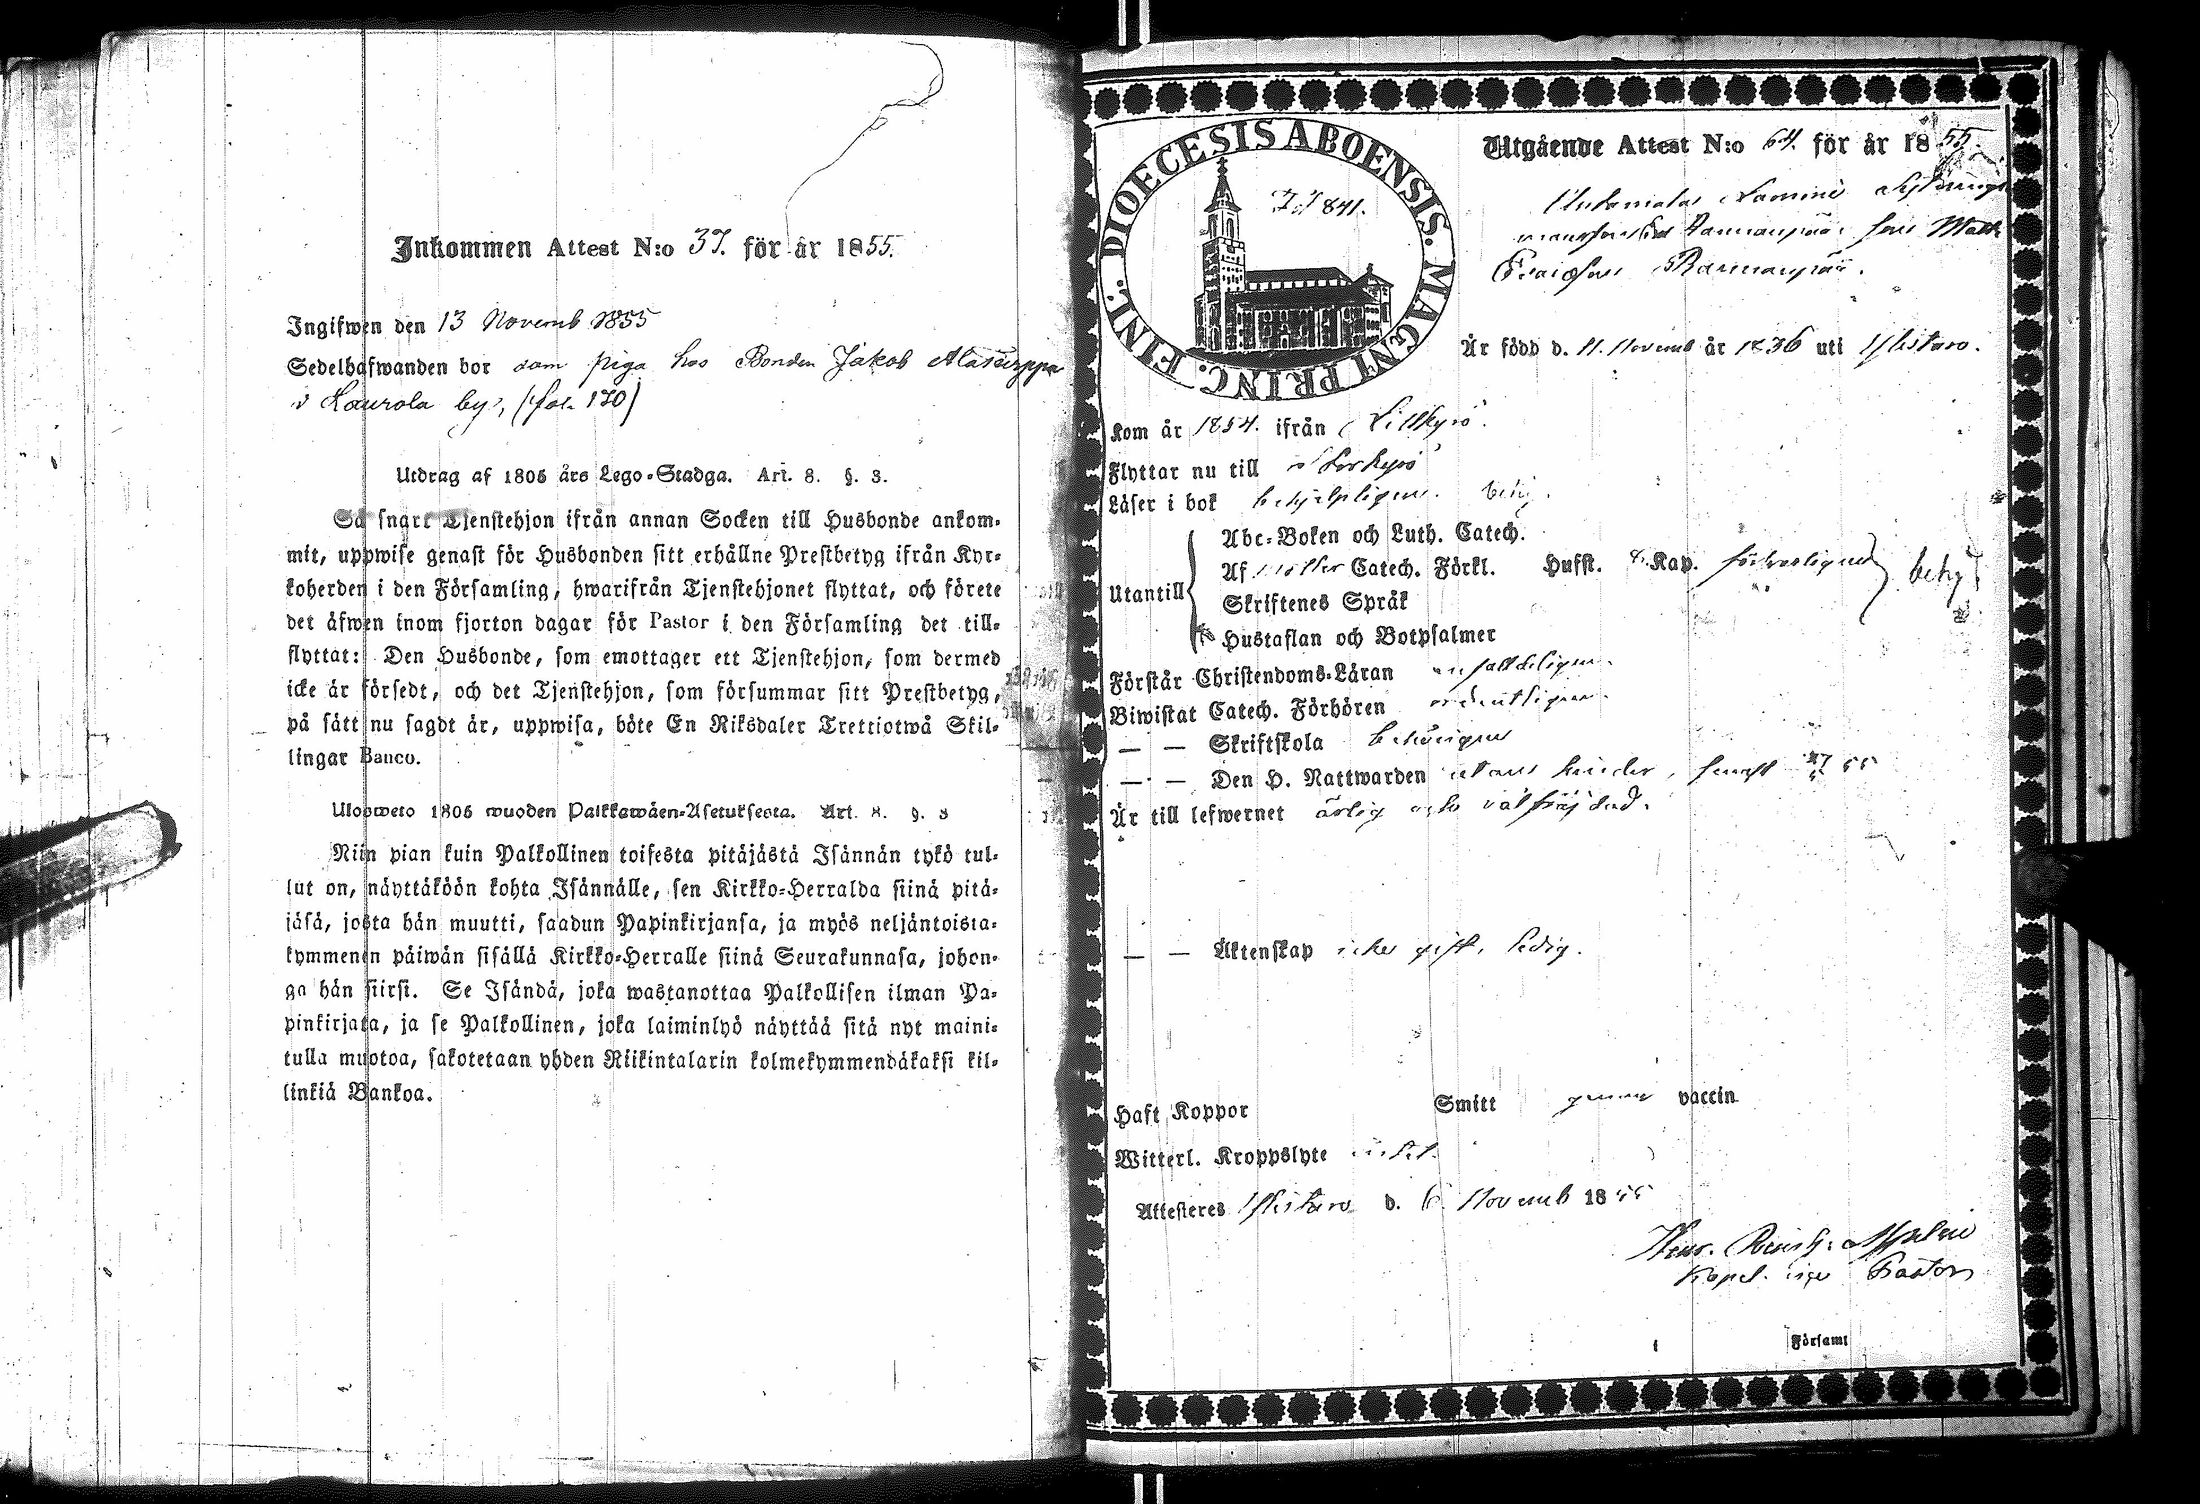 Inkommen Attest N:o 37. för år 1855.
Ingifwen den 13 Novemb 1855
Sedelhafwanden bor som piga hos Bonden Jakob
i Kaurola by, (fol. 170)
Utdrag af 1805 års Lego-Stadga. Art. 8. §. 3.
Så snart Tjenstehjon ifrån annan Socken till Husbonde ankom-
mit, uppwise genast för Husbonden sitt erhållne Prestbetyg ifrån Kyr-
koherden i den Församling, hwarifrån Tjenstehjonet flyttat, och förete
det äfwen inom fjorton dagar för Pastor i den Församling det till-
flyttat: Den Husbonde, som emottager ett Tjenstehjon, som dermed
icke är försedt, och det Tjenstehjon, som försummar sitt Prestbetyg,
på sätt nu sagdt är, uppwisa, böte En Riksdaler Trettiotwå Skil-
lingar Banco.
Ulosweto 1805 wuoden Palkkawäen-Asetuksesta. Art. 8. §. 3
Niin pian kuin Palkollinen toisesta pitäjästä Isännän tykö tul-
lut on, näyttäköön kohta Isännälle, sen Kirkko-Herralda siinä pitä-
jäsä, josta hän muutti, saadun Papinkirjansa, ja myös neljäntoista-
kymmenen päiwän sisällä Kirkko-Herralle siinä Seurakunnasa, johon-
ga hän siirsi. Se Isändä, joka wastanottaa Palkollisen ilman Pa-
pinkirjata, ja se Palkollinen, joka laiminlyö näyttää sitä nyt maini-
tulla muotoa, sakotetaan yhden Riikintalarin kolmekymmendäkaksi kil-
linkiä Bankoa.
DIOECESIS ABOENSIS. MAGNI PRINC. FINL.
841.
Utgående Attest N:o 64. för år 1855.
Rannanpää
Rannanpää.
Är född d. 11. Novemb år 1836 uti Ylistaro.
Kom år 1854. ifrån Lillkyro.
Flyttar nu till Storkyro
Läser i bok behjelpligen.
Utantill
Abc-Boken och Luth. Catech.
Af Möller Catech. Förkl. Hufst. Kap. försvarligen
Skriftenes Språk
Hustaflan och Botpsalmer
Förstår Christendoms-Läran enfaldeligen.
Biwistat Catech. Förhören ordentligen.
— — Skriftskola behörigen
— — Den H. Nattwarden utan hinder, senast 55
Är till lefwernet ärlig och välfräjdad.
— — Äktenskap icke gift, ledig.
Haft Koppor Smitt genom vaccin
Witterl. Kroppslyte intet.
Attesteres Ylistaro d. 6 Novemb 1855
Kapel. Pastor
Församl